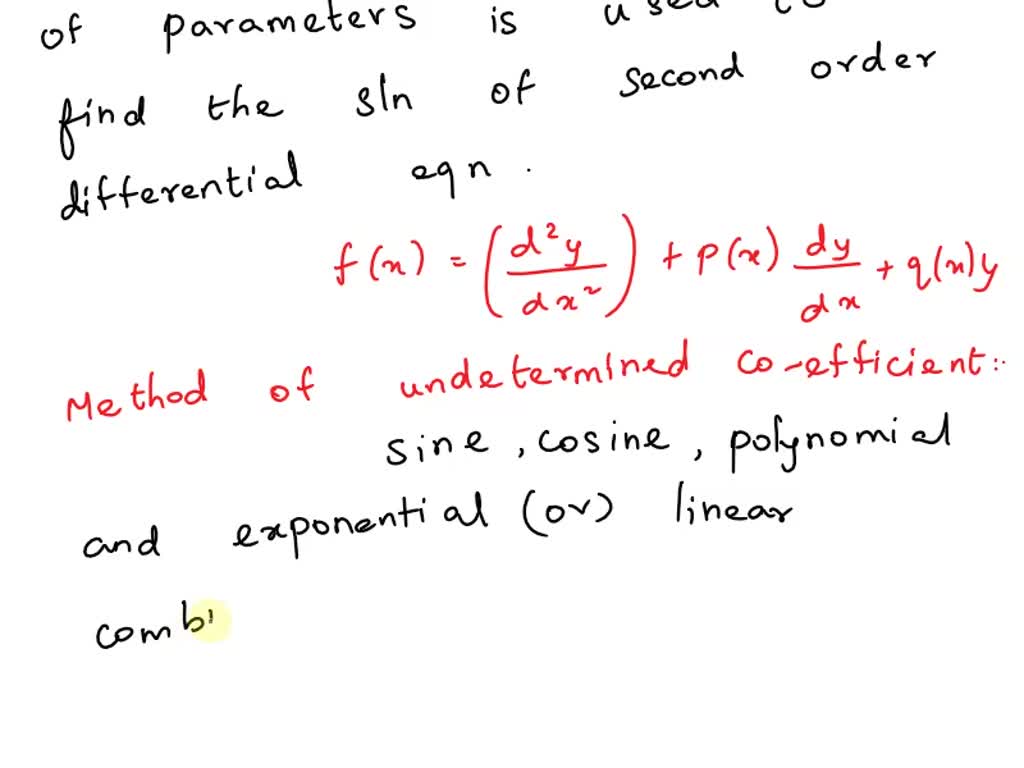 of parameters is used to
find the sln of second order
differential eqn .
f(x) = (d²y/dx²) + p(x) dy/dx + q(x)y
Method of undetermined co-efficient:-
sine , cosine , polynomial
and exponential (or) linear
combi